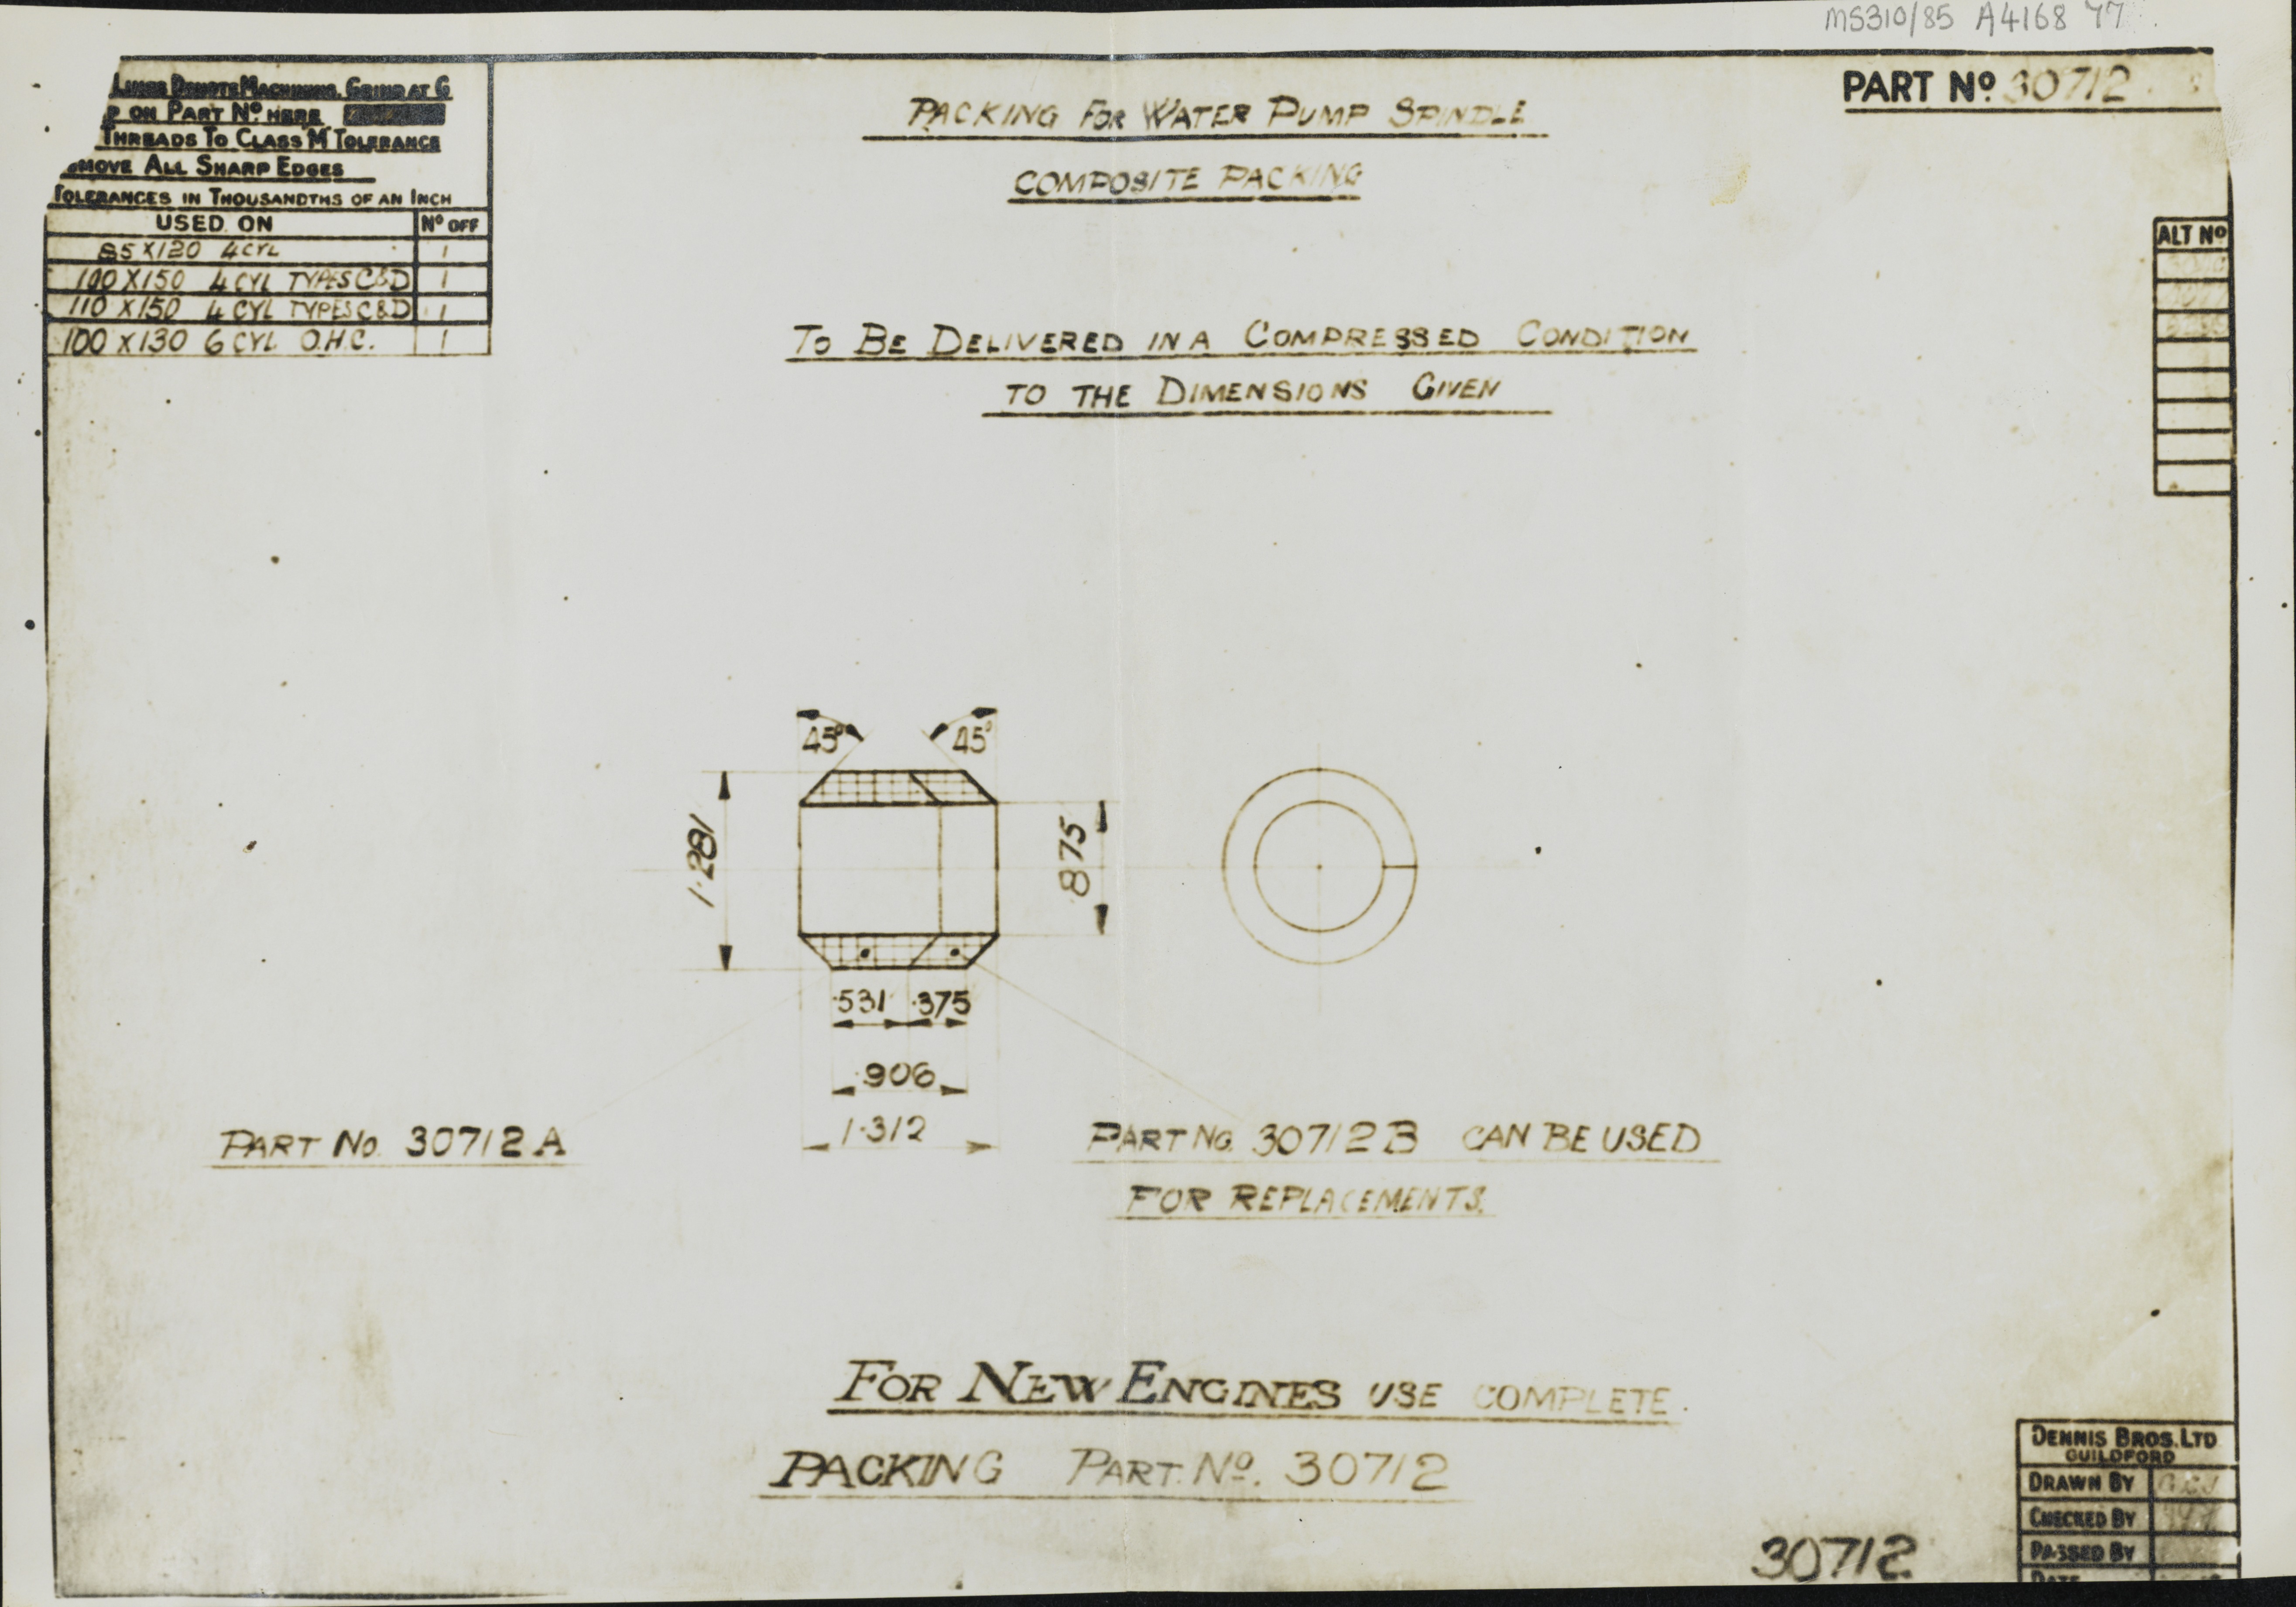 MS310/85 A4168 77
LINES DENOTE MACHINING. GRIND AT G
ON PART Nº HERE
THREADS TO CLASS "M" TOLERANCE
MOVE ALL SHARP EDGES
TOLERANCES IN THOUSANDTHS OF AN INCH
USED ON Nº OFF
85 X 120 4 CYL 1
100 X 150 4 CYL TYPES C&D 1
110 X 150 4 CYL TYPES C&D 1
100 X 130 6 CYL O.H.C. 1
PART Nº 30712
PACKING FOR WATER PUMP SPINDLE
COMPOSITE PACKING
TO BE DELIVERED IN A COMPRESSED CONDITION
TO THE DIMENSIONS GIVEN
ALT Nº
45° 45°
1.281
.875
.531 .375
.906
1.312
PART NO. 30712 A
PART NO. 30712 B CAN BE USED
FOR REPLACEMENTS.
FOR NEW ENGINES USE COMPLETE
PACKING PART. Nº. 30712
30712
DENNIS BROS. LTD
GUILDFORD
DRAWN BY
CHECKED BY
PASSED BY
DATE